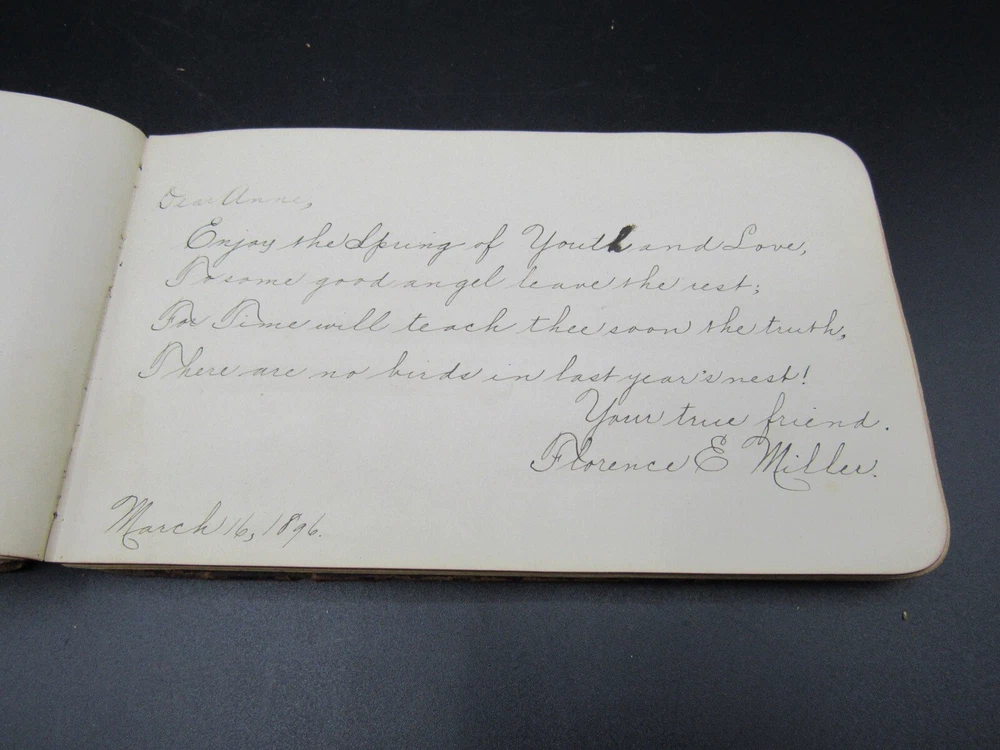 Dear Anne,
Enjoy the Spring of Youth and Love,
To some good angel leave the rest;
For Time will teach thee soon the truth,
There are no birds in last year's nest!
Your true friend.
Florence E Miller.
March 16, 1896.